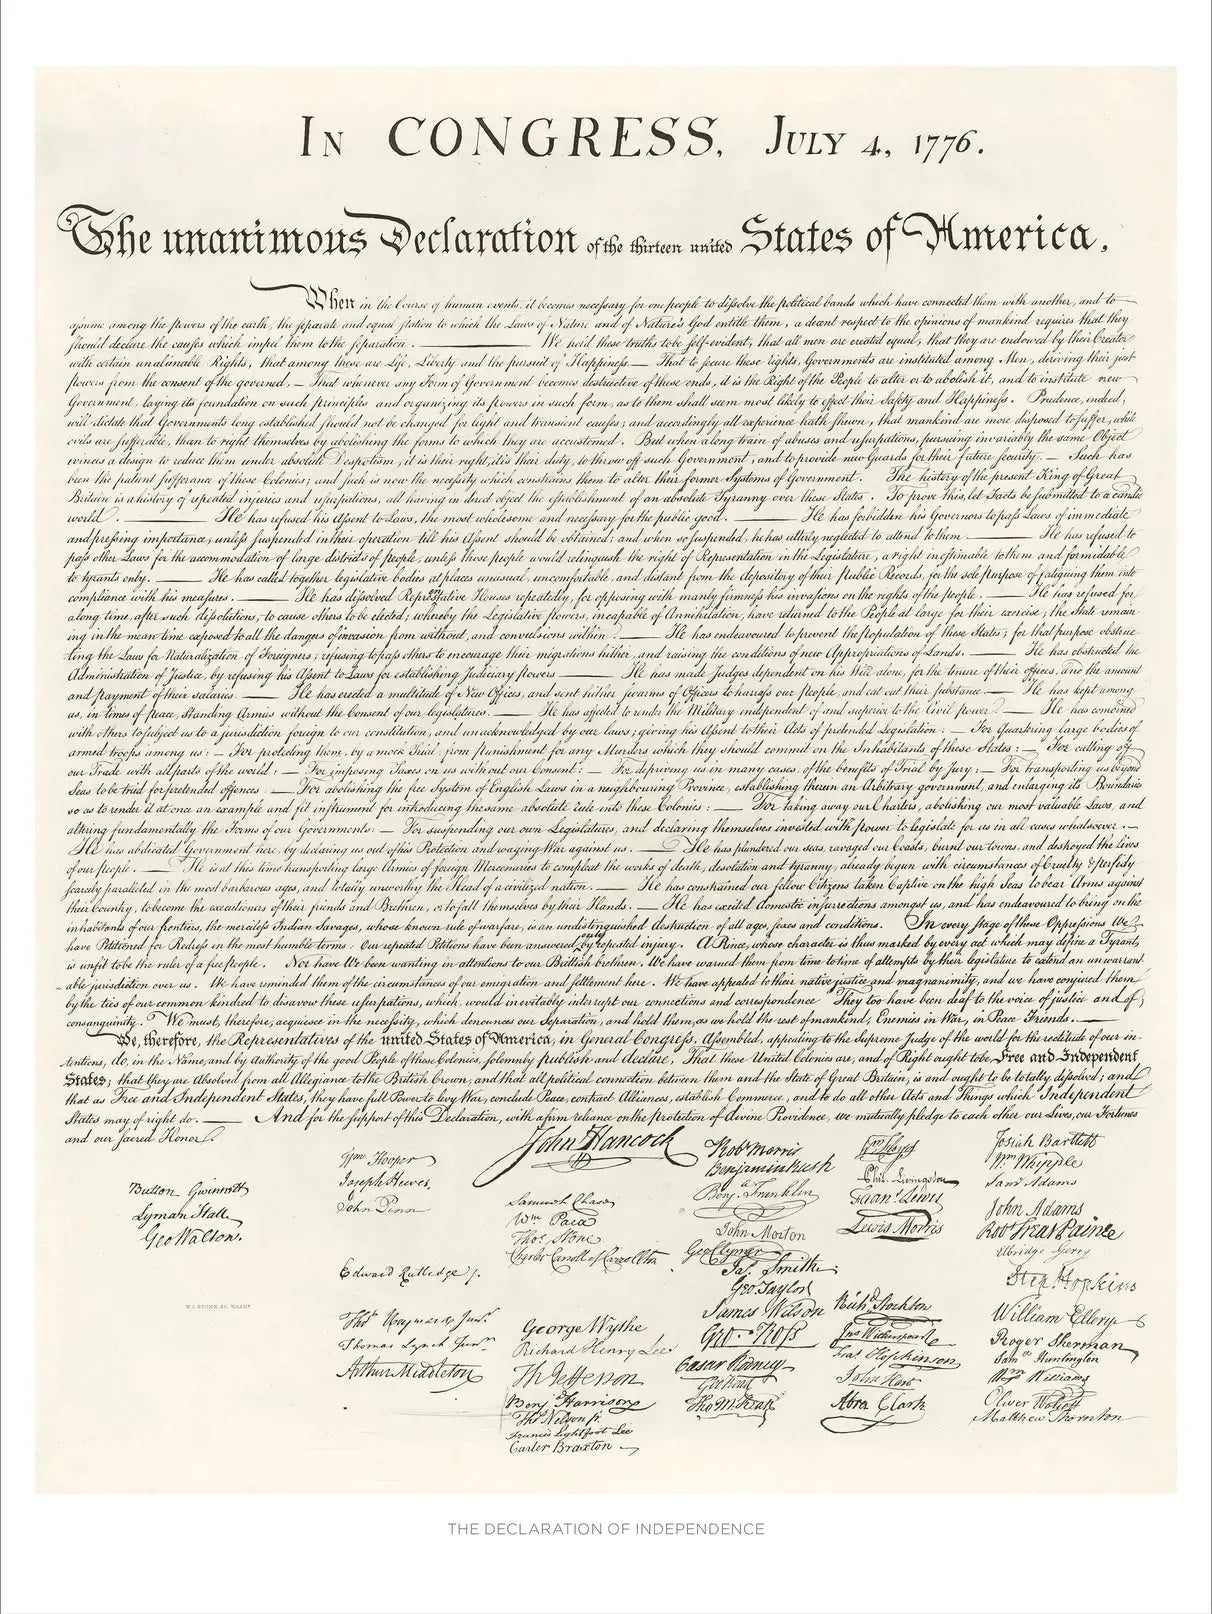 IN CONGRESS, JULY 4, 1776.
The unanimous Declaration of the thirteen united States of America,
When in the Course of human events, it becomes necessary for one people to dissolve the political bands which have connected them with another, and to
assume among the powers of the earth, the separate and equal station to which the Laws of Nature and of Nature's God entitle them, a decent respect to the opinions of mankind requires that they
should declare the causes which impel them to the separation. — We hold these truths to be self-evident, that all men are created equal, that they are endowed by their Creator
with certain unalienable Rights, that among these are Life, Liberty and the pursuit of Happiness. — That to secure these rights, Governments are instituted among Men, deriving their just
powers from the consent of the governed, — That whenever any Form of Government becomes destructive of these ends, it is the Right of the People to alter or to abolish it, and to institute new
Government, laying its foundation on such principles and organizing its powers in such form, as to them shall seem most likely to effect their Safety and Happiness. Prudence, indeed,
will dictate that Governments long established should not be changed for light and transient causes; and accordingly all experience hath shewn, that mankind are more disposed to suffer, while
evils are sufferable, than to right themselves by abolishing the forms to which they are accustomed. But when a long train of abuses and usurpations, pursuing invariably the same Object
evinces a design to reduce them under absolute Despotism, it is their right, it is their duty, to throw off such Government, and to provide new Guards for their future security. — Such has
been the patient sufferance of these Colonies; and such is now the necessity which constrains them to alter their former Systems of Government. The history of the present King of Great
Britain is a history of repeated injuries and usurpations, all having in direct object the establishment of an absolute Tyranny over these States. To prove this, let Facts be submitted to a candid
world. — He has refused his Assent to Laws, the most wholesome and necessary for the public good. — He has forbidden his Governors to pass Laws of immediate
and pressing importance, unless suspended in their operation till his Assent should be obtained; and when so suspended, he has utterly neglected to attend to them. — He has refused to
pass other Laws for the accommodation of large districts of people, unless those people would relinquish the right of Representation in the Legislature, a right inestimable to them and formidable
to tyrants only. — He has called together legislative bodies at places unusual, uncomfortable, and distant from the depository of their public Records, for the sole purpose of fatiguing them into
compliance with his measures. — He has dissolved Representative Houses repeatedly, for opposing with manly firmness his invasions on the rights of the people. — He has refused for
a long time, after such dissolutions, to cause others to be elected; whereby the Legislative powers, incapable of Annihilation, have returned to the People at large for their exercise; the State remain
ing in the mean time exposed to all the dangers of invasion from without, and convulsions within. — He has endeavoured to prevent the population of these States; for that purpose obstruc
ting the Laws for Naturalization of Foreigners; refusing to pass others to encourage their migrations hither, and raising the conditions of new Appropriations of Lands. — He has obstructed the
Administration of Justice, by refusing his Assent to Laws for establishing Judiciary powers — He has made Judges dependent on his Will alone, for the tenure of their offices, and the amount
and payment of their salaries. — He has erected a multitude of New Offices, and sent hither swarms of Officers to harrass our people, and eat out their substance — He has kept among
us, in times of peace, Standing Armies without the Consent of our legislatures. — He has affected to render the Military independent of and superior to the Civil power. — He has combined
with others to subject us to a jurisdiction foreign to our constitution, and unacknowledged by our laws; giving his Assent to their Acts of pretended Legislation: — For Quartering large bodies of
armed troops among us: — For protecting them, by a mock Trial, from punishment for any Murders which they should commit on the Inhabitants of these States: — For cutting off
our Trade with all parts of the world: — For imposing Taxes on us without our Consent: — For depriving us in many cases, of the benefits of Trial by Jury; — For transporting us beyond
Seas to be tried for pretended offences — For abolishing the free System of English Laws in a neighbouring Province, establishing therein an Arbitrary government, and enlarging its Boundaries
so as to render it at once an example and fit instrument for introducing the same absolute rule into these Colonies: — For taking away our Charters, abolishing our most valuable Laws, and
altering fundamentally the Forms of our Governments: — For suspending our own Legislatures, and declaring themselves invested with power to legislate for us in all cases whatsoever. —
He has abdicated Government here, by declaring us out of his Protection and waging War against us. — He has plundered our seas, ravaged our Coasts, burnt our towns, and destroyed the lives
of our people. — He is at this time transporting large Armies of foreign Mercenaries to compleat the works of death, desolation and tyranny, already begun with circumstances of Cruelty & perfidy
scarcely paralleled in the most barbarous ages, and totally unworthy the Head of a civilized nation. — He has constrained our fellow Citizens taken Captive on the high Seas to bear Arms against
their Country, to become the executioners of their friends and Brethren, or to fall themselves by their Hands. — He has excited domestic insurrections amongst us, and has endeavoured to bring on the
inhabitants of our frontiers, the merciless Indian Savages, whose known rule of warfare, is an undistinguished destruction of all ages, sexes and conditions. In every stage of these Oppressions We
have Petitioned for Redress in the most humble terms: Our repeated Petitions have been answered only by repeated injury. A Prince, whose character is thus marked by every act which may define a Tyrant,
is unfit to be the ruler of a free people. Nor have We been wanting in attentions to our Brittish brethren. We have warned them from time to time of attempts by their legislature to extend an unwarrant
able jurisdiction over us. We have reminded them of the circumstances of our emigration and settlement here. We have appealed to their native justice and magnanimity, and we have conjured them
by the ties of our common kindred to disavow these usurpations, which, would inevitably interrupt our connections and correspondence They too have been deaf to the voice of justice and of
consanguinity. We must, therefore, acquiesce in the necessity, which denounces our Separation, and hold them, as we hold the rest of mankind, Enemies in War, in Peace Friends. —
We, therefore, the Representatives of the united States of America, in General Congress, Assembled, appealing to the Supreme Judge of the world for the rectitude of our in-
tentions, do, in the Name, and by Authority of the good People of these Colonies, solemnly publish and declare, That these United Colonies are, and of Right ought to be Free and Independent
States; that they are Absolved from all Allegiance to the British Crown, and that all political connection between them and the State of Great Britain, is and ought to be totally dissolved; and
that as Free and Independent States, they have full Power to levy War, conclude Peace, contract Alliances, establish Commerce, and to do all other Acts and Things which Independent
States may of right do. — And for the support of this Declaration, with a firm reliance on the protection of divine Providence, we mutually pledge to each other our Lives, our Fortunes
and our sacred Honor.
Button Gwinnett
Lyman Hall
Geo Walton.
W.J. STONE SC. WASHN
Wm Hooper
Joseph Hewes,
John Penn
Edward Rutledge /.
Thos Heyward Junr.
Thomas Lynch Junr.
Arthur Middleton
John Hancock
Samuel Chase
Wm Paca
Thos Stone
Charles Carroll of Carrollton
George Wythe
Richard Henry Lee
Th Jefferson
Benj Harrison
Thos Nelson jr.
Francis Lightfoot Lee
Carter Braxton
Robt Morris
Benjamin Rush
Benj. Franklin
John Morton
Geo Clymer
Jas. Smith
Geo. Taylor
James Wilson
Geo. Ross
Caesar Rodney
Geo Read
Tho M:Kean
Wm Floyd
Phil. Livingston
Frans. Lewis
Lewis Morris
Richd. Stockton
Jno Witherspoon
Fras. Hopkinson
John Hart
Abra Clark
Josiah Bartlett
Wm Whipple
Saml Adams
John Adams
Robt Treat Paine
Elbridge Gerry
Step Hopkins
William Ellery
Roger Sherman
Saml Huntington
Wm Williams
Oliver Wolcott
Matthew Thornton
THE DECLARATION OF INDEPENDENCE